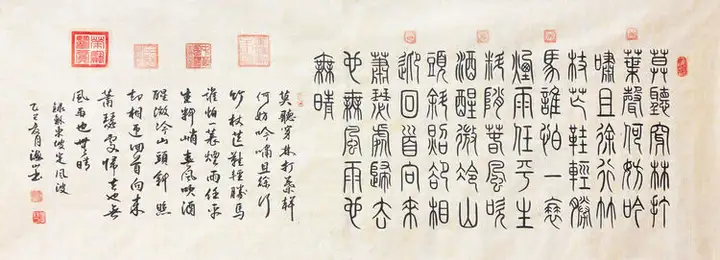 莫聽穿林打
葉聲何妨吟
嘯且徐行竹
杖芒鞋輕勝
馬誰怕一蓑
煙雨任平生
料峭春風吹
酒醒微冷山
頭斜照卻相
迎回首向來
蕭瑟處歸去
也無風雨也
無晴
莫聽穿林打葉聲
何妨吟嘯且徐行
竹杖芒鞋輕勝馬
誰怕一蓑煙雨任平
生料峭春風吹酒
醒微冷山頭斜照
却相迎回首向來
蕭瑟處歸去也無
風雨也無晴
錄蘇東坡定風波
乙巳夏月海